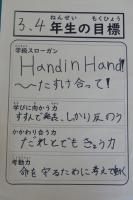 ねんせい もくひょう
3.4年生の目標
学級スローガン
Hand in Hand!
〜たすけ合って!
学びに向かう力
すすんで発表、しっかり反のう
かかわり合う力
だれとでも きょう力
考動力
命を守るために考えて動く